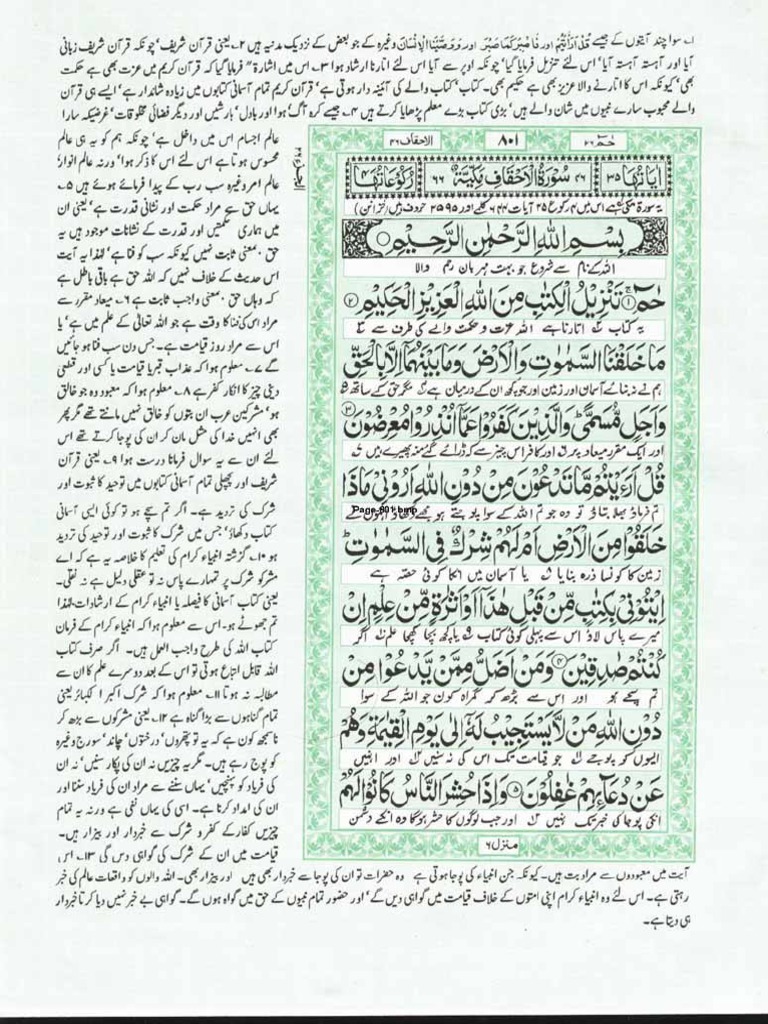 ۱۔ سوا چند آیتوں کے جیسے قُلْ اَرَءَیْتُمْ اور فَاصْبِرْ كَمَا صَبَرَ اور وَوَصَّيْنَا الْاِنْسَانَ وغیرہ کے جو بعض کے نزدیک مدنیہ ہیں ۲۔ یعنی قرآن شریف، چونکہ قرآن شریف زبانی
آیا اور آہستہ آہستہ آیا، اس لئے تنزیل فرمایا گیا، چونکہ اوپر سے آیا اس لئے اتارنا ارشاد ہوا ۳۔ اس میں اشارۃ" فرمایا گیا کہ قرآن کریم میں عزت بھی ہے حکمت
بھی، کیونکہ اس کا اتارنے والا عزیز بھی ہے حکیم بھی۔ کتاب، کتاب والے کی آئینہ دار ہوتی ہے، قرآن کریم تمام آسمانی کتابوں میں زیادہ شاندار ہے، ایسے ہی قرآن
والے محبوب سارے نبیوں میں شان والے ہیں، بڑی کتاب بڑے معلم پڑھایا کرتے ہیں ۴۔ جیسے کرہ آگ، ہوا اور بادل، بارشیں اور دیگر فضائی مخلوقات، غرضیکہ سارا
حٰمٓ ۲۶
۸۰۱
الاحقاف ۴۶
اٰیَاتُهَا ۳۵
۴۶ سُوْرَةُ الْاَحْقَافِ مَكِّيَّةٌ ۶۶
رُكُوْعَاتُهَا ۴
یہ سورۃ مکی ہے اس میں ۴ رکوع ۳۵ آیات ۶۴۴ کلمے اور ۲۵۹۵ حروف ہیں (خزائن)
بِسْمِ اللهِ الرَّحْمٰنِ الرَّحِيْمِ
اللہ کے نام سے شروع جو بہت مہربان رحم والا
حٰمٓ ۚ تَنْزِيْلُ الْكِتٰبِ مِنَ اللهِ الْعَزِيْزِ الْحَكِيْمِ
یہ کتاب اتارنا ہے اللہ عزت و حکمت والے کی طرف سے
مَا خَلَقْنَا السَّمٰوٰتِ وَالْاَرْضَ وَمَا بَيْنَهُمَاۤ اِلَّا بِالْحَقِّ
ہم نے نہ بنائے آسمان اور زمین اور جو کچھ ان کے درمیان ہے مگر حق کے ساتھ
وَاَجَلٍ مُّسَمًّى ؕ وَالَّذِيْنَ كَفَرُوْا عَمَّاۤ اُنْذِرُوْا مُعْرِضُوْنَ
اور ایک مقرر میعاد پر اور کافر اس چیز سے کہ ڈرائے گئے منہ پھیرے ہیں
قُلْ اَرَءَيْتُمْ مَّا تَدْعُوْنَ مِنْ دُوْنِ اللهِ اَرُوْنِيْ مَاذَا
تم فرماؤ بھلا بتاؤ تو وہ جو تم اللہ کے سوا پوجتے ہو مجھے دکھاؤ انہوں نے
Page-801.bmp
خَلَقُوْا مِنَ الْاَرْضِ اَمْ لَهُمْ شِرْكٌ فِي السَّمٰوٰتِ ؕ
زمین کا کونسا ذرہ بنایا یا آسمان میں انکا کوئی حصہ ہے
اِيْتُوْنِيْ بِكِتٰبٍ مِّنْ قَبْلِ هٰذَاۤ اَوْ اَثٰرَةٍ مِّنْ عِلْمٍ اِنْ
میرے پاس لاؤ اس سے پہلی کوئی کتاب یا کچھ بچا کھچا علم اگر
كُنْتُمْ صٰدِقِيْنَ وَمَنْ اَضَلُّ مِمَّنْ يَّدْعُوْا مِنْ
تم سچے ہو اور اس سے بڑھ کر گمراہ کون جو اللہ کے سوا
دُوْنِ اللهِ مَنْ لَّا يَسْتَجِيْبُ لَهٗۤ اِلٰى يَوْمِ الْقِيٰمَةِ وَهُمْ
ایسوں کو پوجے جو قیامت تک اس کی نہ سنیں اور انہیں
عَنْ دُعَآئِهِمْ غٰفِلُوْنَ وَاِذَا حُشِرَ النَّاسُ كَانُوْا لَهُمْ
انکی پوجا کی خبر تک نہیں اور جب لوگوں کا حشر ہوگا وہ انکے دشمن
منزل ۶
عالم اجسام اس میں داخل ہے، چونکہ ہم کو یہ ہی عالم
محسوس ہوتا ہے اس لئے اس کا ذکر ہوا، ورنہ عالم انوار،
عالم امر وغیرہ سب رب کے پیدا فرمائے ہوئے ہیں ۵۔
یہاں حق سے مراد حکمت اور نشانی قدرت ہے، یعنی ان
میں ہماری حکمتیں اور قدرت کے نشانات موجود ہیں یہ
حق، بمعنی ثابت نہیں کیونکہ سب کو فنا ہے، لہٰذا یہ آیت
اس حدیث کے خلاف نہیں کہ اللہ حق ہے باقی باطل ہے
کہ وہاں حق، بمعنی واجب ثابت ہے ۶۔ میعاد مقرر سے
مراد اس کی فنا کا وقت ہے جو اللہ تعالیٰ کے علم میں ہے، یا
اس سے مراد روز قیامت ہے۔ جس دن سب فنا ہو جائیں
گے ۷۔ معلوم ہوا کہ عذاب قبر یا قیامت یا کسی اور قطعی
دینی چیز کا انکار کفر ہے ۸۔ معلوم ہوا کہ معبود وہ جو خالق
ہو، مشرکین عرب ان بتوں کو خالق نہیں مانتے تھے مگر پھر
بھی انہیں خدا کی مثل مان کر ان کی پوجا کرتے تھے اس
لئے ان سے یہ سوال فرمانا درست ہوا ۹۔ یعنی قرآن
شریف اور پچھلی تمام آسمانی کتابوں میں توحید کا ثبوت اور
شرک کی تردید ہے۔ اگر تم سچے ہو تو کوئی ایسی آسمانی
کتاب دکھاؤ، جس میں شرک کا ثبوت اور توحید کی تردید
ہو ۱۰۔ گزشتہ انبیاء کرام کی تعلیم کا خلاصہ یہ ہے کہ اے
مشرکو شرک پر تمہارے پاس نہ تو عقلی دلیل ہے نہ نقلی۔
یعنی کتاب آسمانی کا فیصلہ یا انبیاء کرام کے ارشادات، لہٰذا
تم جھوٹے ہو۔ اس سے معلوم ہوا کہ انبیاء کرام کے فرمان
کتاب اللہ کی طرح واجب العمل ہیں۔ اگر صرف کتاب
اللہ قابل اتباع ہوتی تو اس کے بعد دوسرے علم کا ان سے
مطالبہ نہ ہوتا ۱۱۔ معلوم ہوا کہ شرک اکبر الکبائر یعنی
تمام گناہوں سے بڑا گناہ ہے ۱۲۔ یعنی مشرکوں سے بڑھ کر
ناسمجھ کون ہے کہ یہ تو پتھروں، درختوں، چاند، سورج وغیرہ
کو پوج رہے ہیں۔ مگر یہ چیزیں نہ ان کی پکار سنیں، نہ ان
کی فریاد کو پہنچیں، یہاں سننے سے مراد ان کی فریاد سننا اور
ان کی امداد کرنا ہے۔ اسی کی یہاں نفی ہے ورنہ یہ تمام
چیزیں کفار کے کفر و شرک سے خبردار اور بیزار ہیں۔
قیامت میں ان کے شرک کی گواہی دیں گی ۱۳۔ اس
آیت میں معبودوں سے مراد بت ہیں۔ کیونکہ جن انبیاء کی پوجا ہوتی ہے وہ حضرات تو ان کی پوجا سے خبردار بھی ہیں اور بیزار بھی۔ اللہ والوں کو واقعات عالم کی خبر
رہتی ہے۔ اس لئے وہ انبیاء کرام اپنی امتوں کے خلاف قیامت میں گواہی دیں گے، اور حضور تمام نبیوں کے حق میں گواہ ہوں گے۔ گواہی بے خبر نہیں دیا کرتا خبردار
ہی دیتا ہے۔